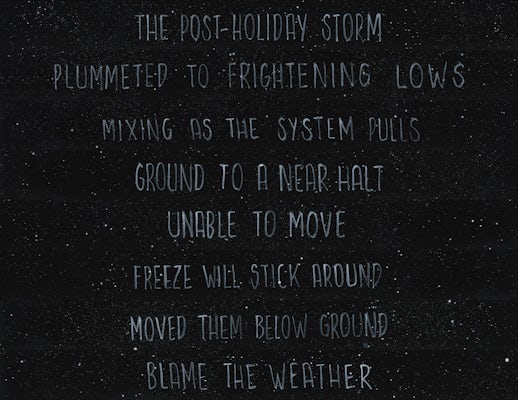 THE POST-HOLIDAY STORM
PLUMMETED TO FRIGHTENING LOWS
MIXING AS THE SYSTEM PULLS
GROUND TO A NEAR HALT
UNABLE TO MOVE
FREEZE WILL STICK AROUND
MOVED THEM BELOW GROUND
BLAME THE WEATHER